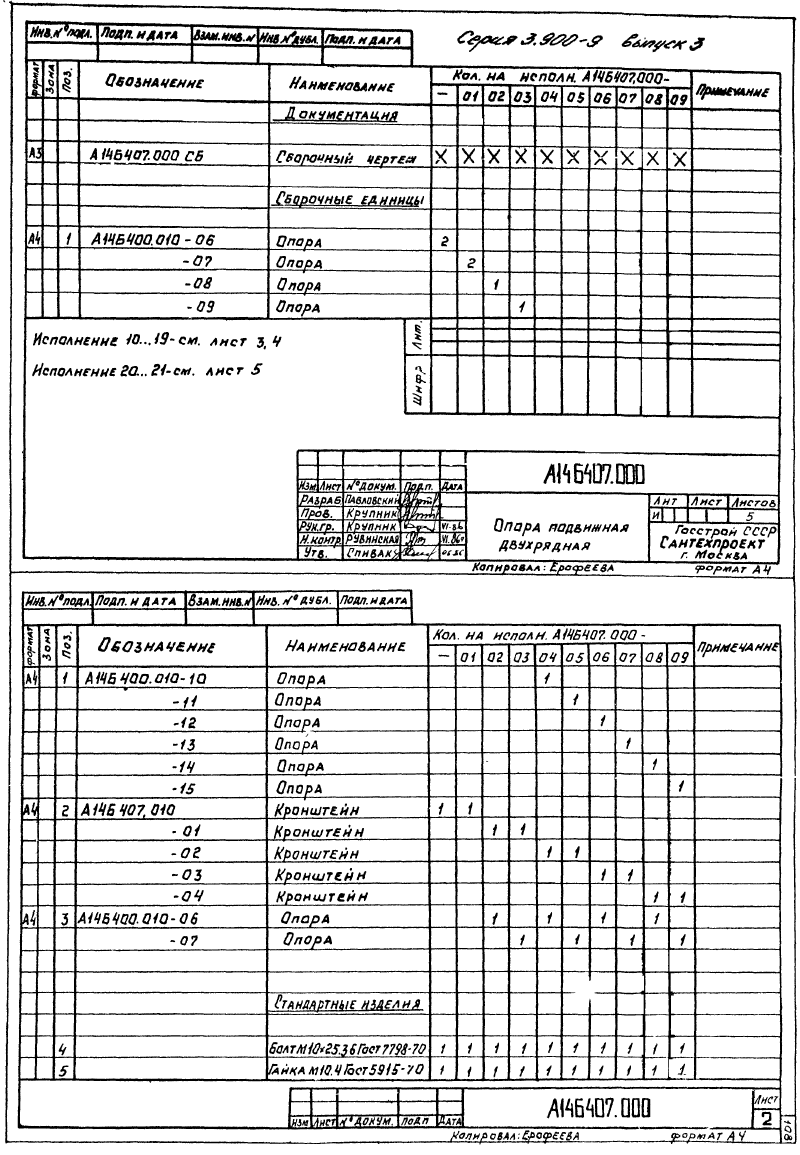 Серия 3.900-9 выпуск 3
Инв.№подл. Подп. и дата Взам.инв.№ Инв.№дубл. Подп. и дата
формат Зона Поз. Обозначение Наименование Кол. на исполн. А14Б407.000- Примечание
— 01 02 03 04 05 06 07 08 09
Документация
А3 А14Б407.000 СБ Сборочный чертеж X X X X X X X X X X
Сборочные единицы
А4 1 А14Б400.010-06 Опора 2
-07 Опора 2
-08 Опора 1
-09 Опора 1
Исполнение 10...19-см. лист 3,4
Исполнение 20...21-см. лист 5
Лит.
Шифр
А14Б407.000
Изм Лист № докум. Подп. Дата
Разраб Павловский
Пров. Крупник
Рук.гр. Крупник VI-86
Н.контр. Рувинская VI.86
Утв. Спивак
Опора подвижная
двухрядная
Лит Лист Листов
И 5
Госстрой СССР
Сантехпроект
г. Москва
Копировал: Ерофеева формат А4
Инв.№подл. Подп. и дата Взам.инв.№ Инв.№дубл. Подп. и дата
формат Зона Поз. Обозначение Наименование Кол. на исполн. А14Б407.000- Примечание
— 01 02 03 04 05 06 07 08 09
А4 1 А14Б400.010-10 Опора 1
-11 Опора 1
-12 Опора 1
-13 Опора 1
-14 Опора 1
-15 Опора 1
А4 2 А14Б407,010 Кронштейн 1 1
-01 Кронштейн 1 1
-02 Кронштейн 1 1
-03 Кронштейн 1 1
-04 Кронштейн 1 1
А4 3 А14Б400.010-06 Опора 1 1 1 1
-07 Опора 1 1 1 1
Стандартные изделия
4 Болт М10×25.36 Гост 7798-70 1 1 1 1 1 1 1 1 1 1
5 Гайка М10.4 Гост 5915-70 1 1 1 1 1 1 1 1 1 1
Изм Лист № докум. Подп Дата
А14Б407.000
Лист
2
108
Копировал: Ерофеева формат А4